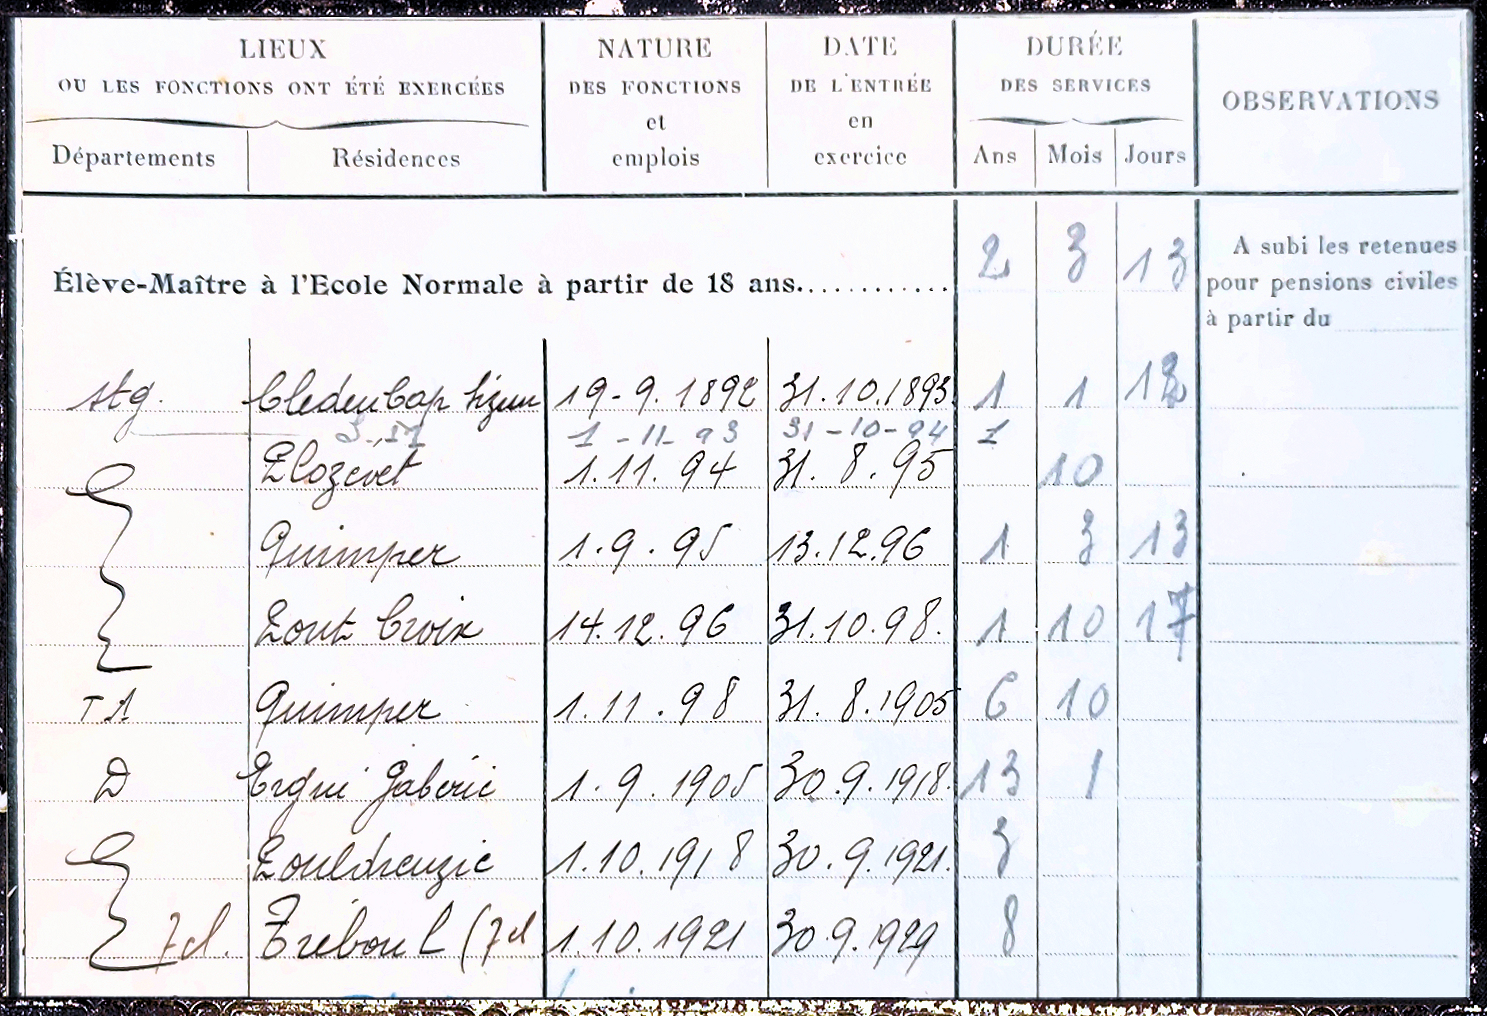 LIEUX
OU LES FONCTIONS ONT ÉTÉ EXERCÉES
Départements
Résidences
NATURE
DES FONCTIONS
et
emplois
DATE
DE L'ENTRÉE
en
exercice
DURÉE
DES SERVICES
Ans Mois Jours
OBSERVATIONS
Élève-Maître à l'Ecole Normale à partir de 18 ans............ 2 3 13
A subi les retenues
pour pensions civiles
à partir du
Stg. Cleden Cap Sizun 19-9.1892 31.10.1893 1 1 12
1-11-93 31-10-94 1
Plozevet 1.11.94 31.8.95 10
Quimper 1.9.95 13.12.96 1 3 13
Pont Croix 14.12.96 31.10.98. 1 10 17
TA Quimper 1.11.98 31.8.1905 6 10
D Ergué Gabéric 1.9.1905 30.9.1918. 13 1
Pouldreuzic 1.10.1918 30.9.1921. 3
7cl. Tréboul (7cl 1.10.1921 30.9.1929 8